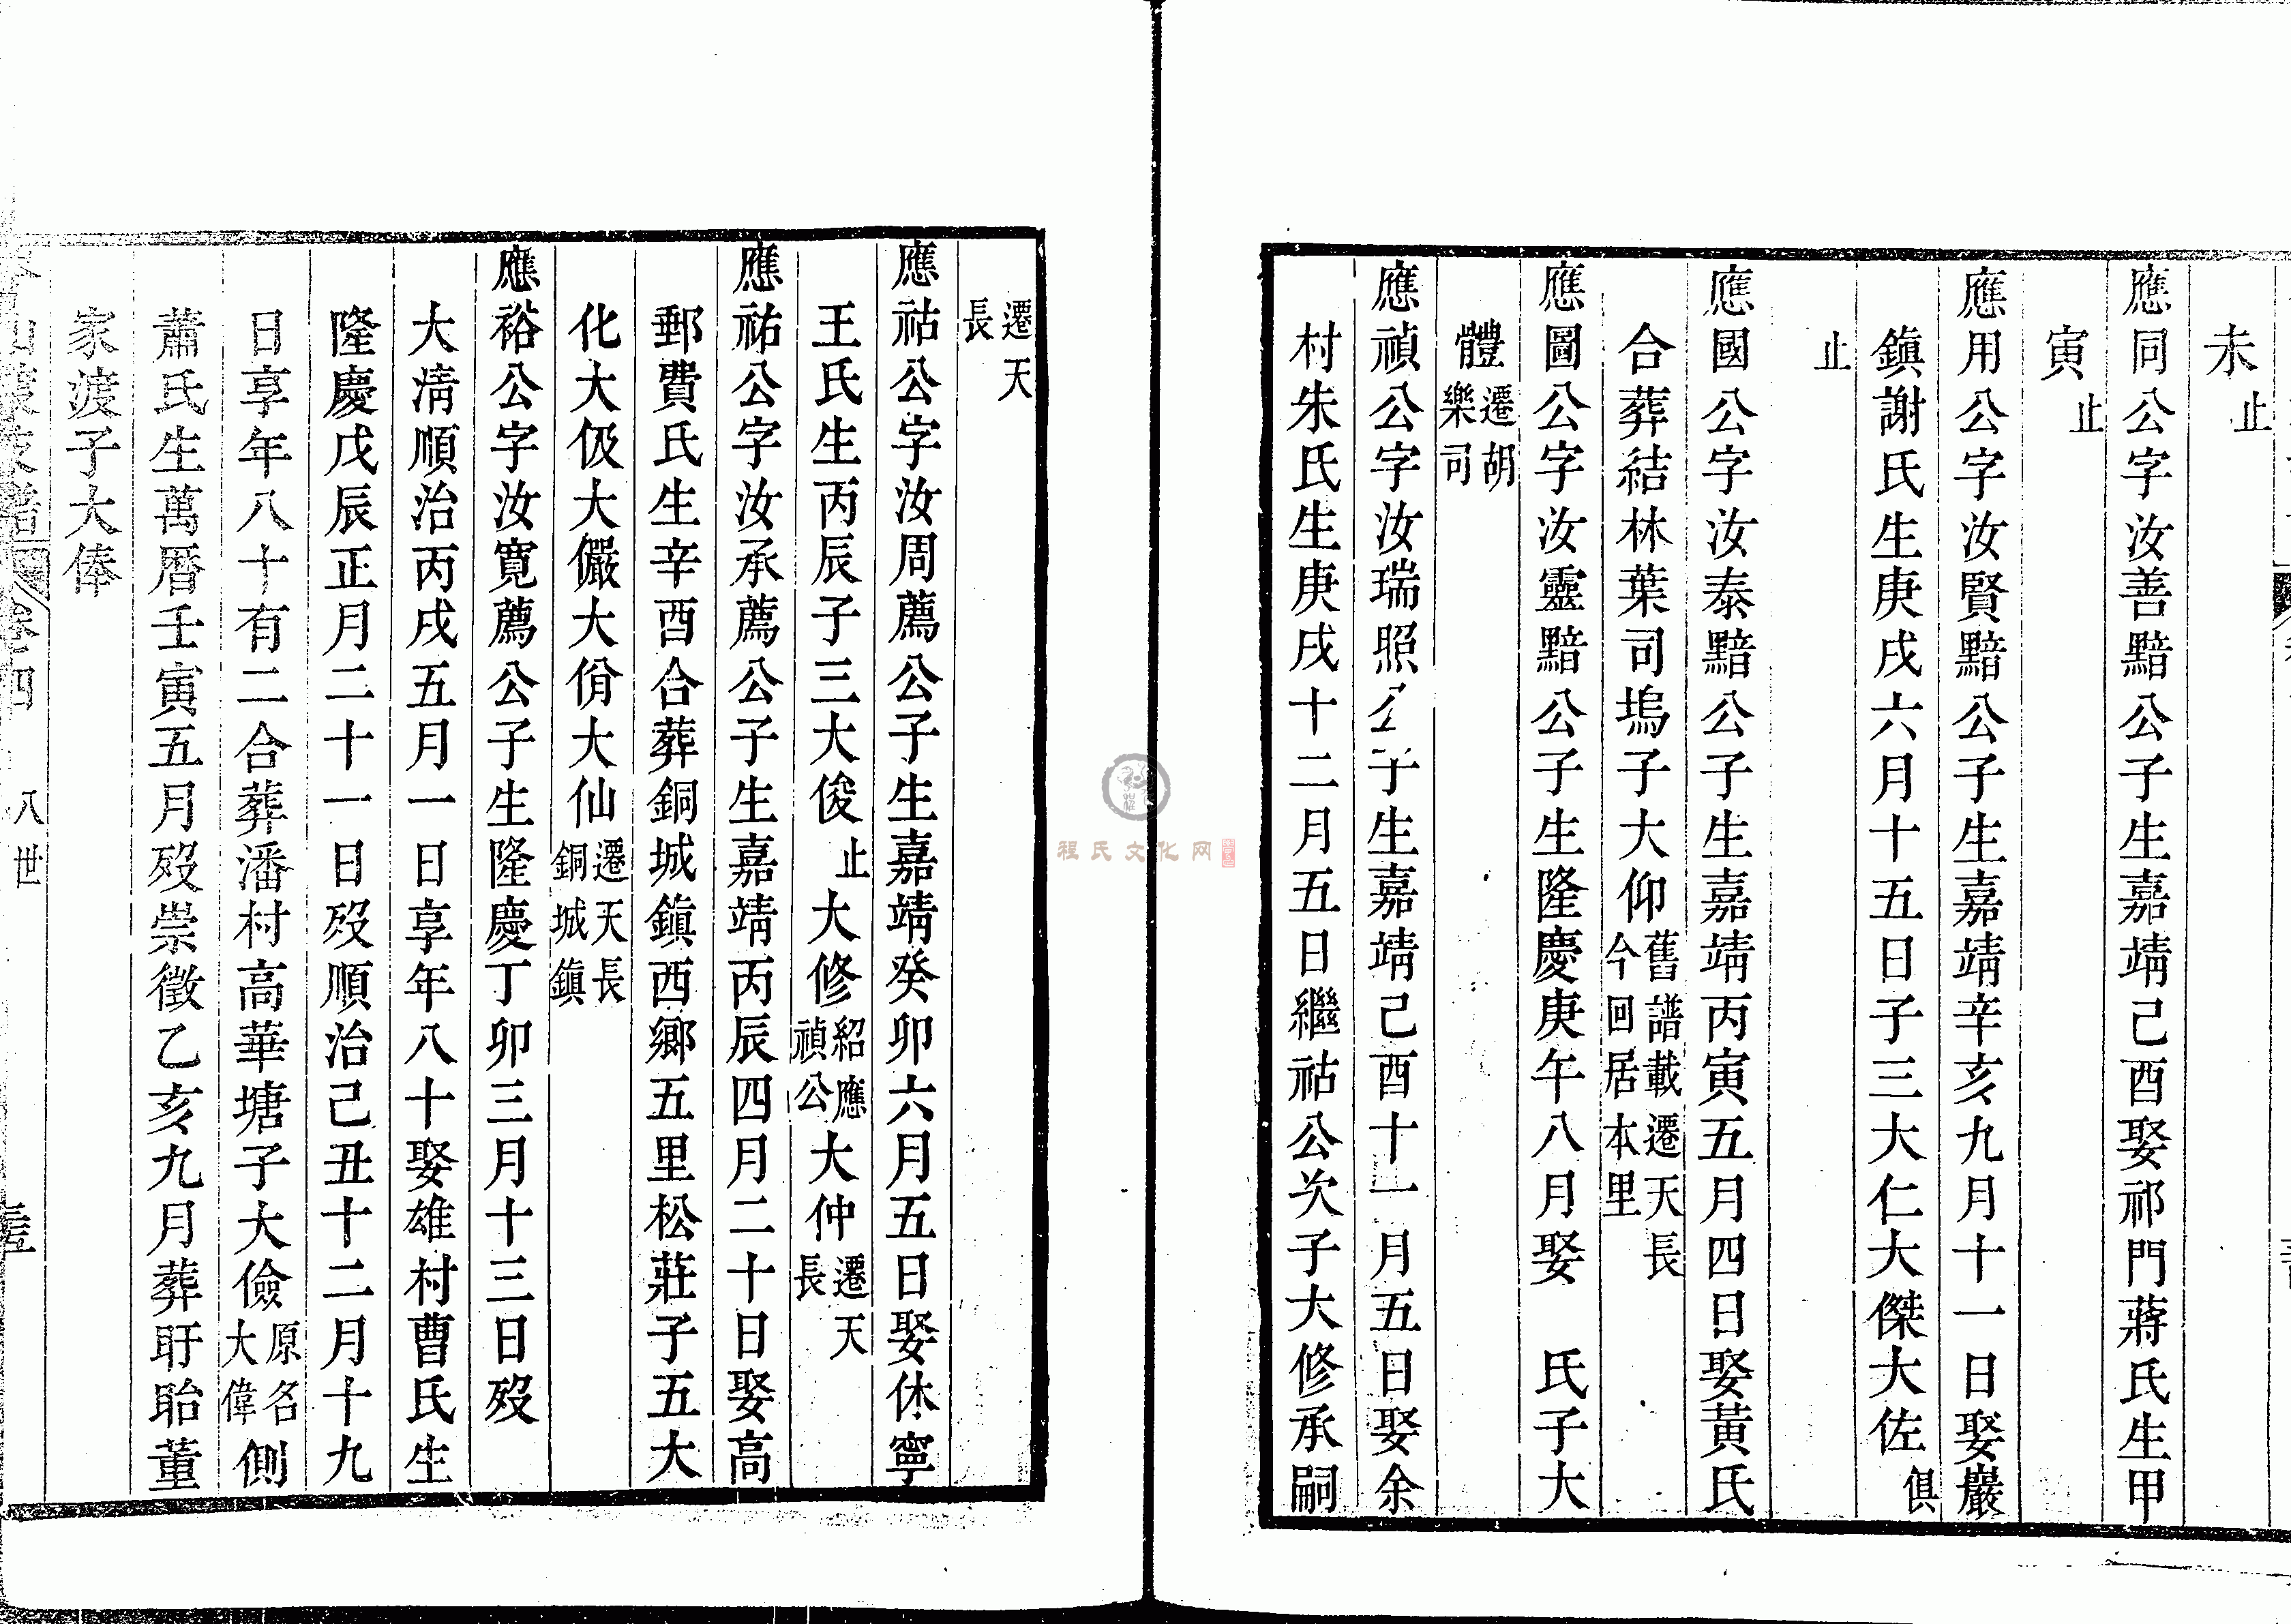 未止
應同公字汝善黯公子生嘉靖己酉娶祁門蔣氏生甲
寅止
應用公字汝賢黯公子生嘉靖辛亥九月十一日娶巖
鎮謝氏生庚戌六月十五日子三大仁大傑大佐俱
止
應國公字汝泰黯公子生嘉靖丙寅五月四日娶黃氏
合葬結林葉司塢子大仰舊譜載遷天長今回居本里
應圖公字汝靈黯公子生隆慶庚午八月娶 氏子大
體遷胡樂司
應禎公字汝瑞照公子生嘉靖己酉十一月五日娶余
村朱氏生庚戌十二月五日繼祜公次子大修承嗣
遷天長
應祜公字汝周薦公子生嘉靖癸卯六月五日娶休寧
王氏生丙辰子三大俊止大修紹應禎公大仲遷天長
應祐公字汝承薦公子生嘉靖丙辰四月二十日娶高
郵費氏生辛酉合葬銅城鎮西鄉五里松莊子五大
化大伋大儼大佾大仙遷天長銅城鎮
應裕公字汝寬薦公子生隆慶丁卯三月十三日歿
大清順治丙戌五月一日享年八十娶雄村曹氏生
隆慶戊辰正月二十一日歿順治己丑十二月十九
日享年八十有二合葬潘村高華塘子大儉原名大偉側
蕭氏生萬曆壬寅五月歿崇徵乙亥九月葬盱眙董
家渡子大俸
支譜 卷四 八世
程氏文化网